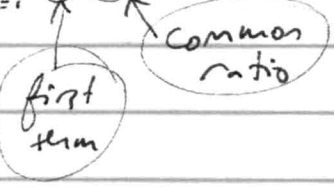 common
ratio
first
term